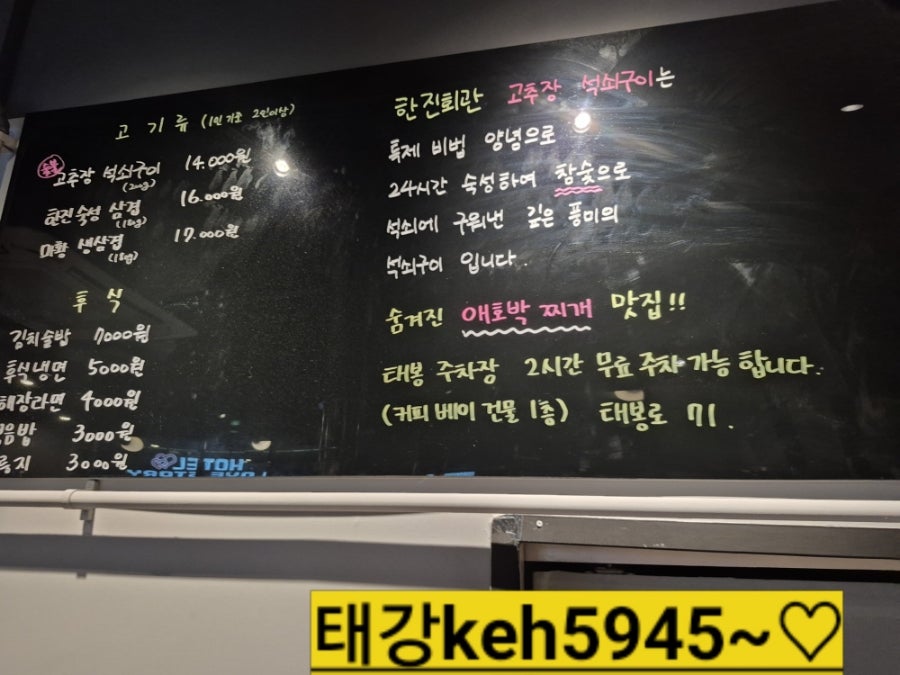 고 기 류 (1인 기준 2인이상)
고추장 석쇠구이 14.000원
한진숙성 삼겹 16.000원
생삼겹 17.000원
후 식
김치술밥 7000원
후식냉면 5000원
해장라면 4000원
볶음밥 3000원
3000원
한진회관 고추장 석쇠구이는
특제 비법 양념으로
24시간 숙성하여 참숯으로
석쇠에 구워낸 깊은 풍미의
석쇠구이 입니다.
숨겨진 애호박 찌개 맛집!!
태봉 주차장 2시간 무료 주차 가능 합니다.
(커피 베이 건물 1층) 태봉로 71.
HOTEL
LOVE STORY
태강keh5945~♡